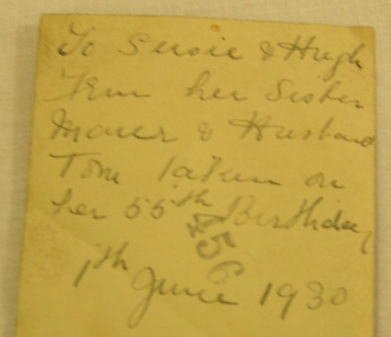 To Susie & Hugh
From her Sister
& Husband
Tom taken on
her 55th Birthday
456
1th June 1930